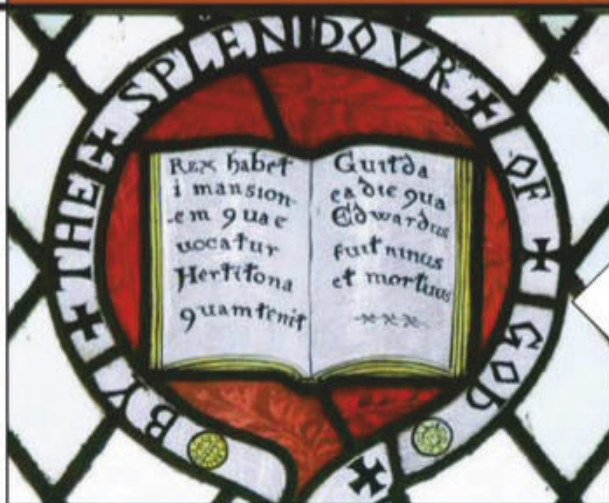 BY ✠ THE ✠ SPLENDOVR ✠ OF ✠ GOD ✠
Rex habet
i mansion-
-em quae
uocatur
Hertitona
quam tenit
Guitda
ea die qua
Edwardus
fuit ninus
et mortuus